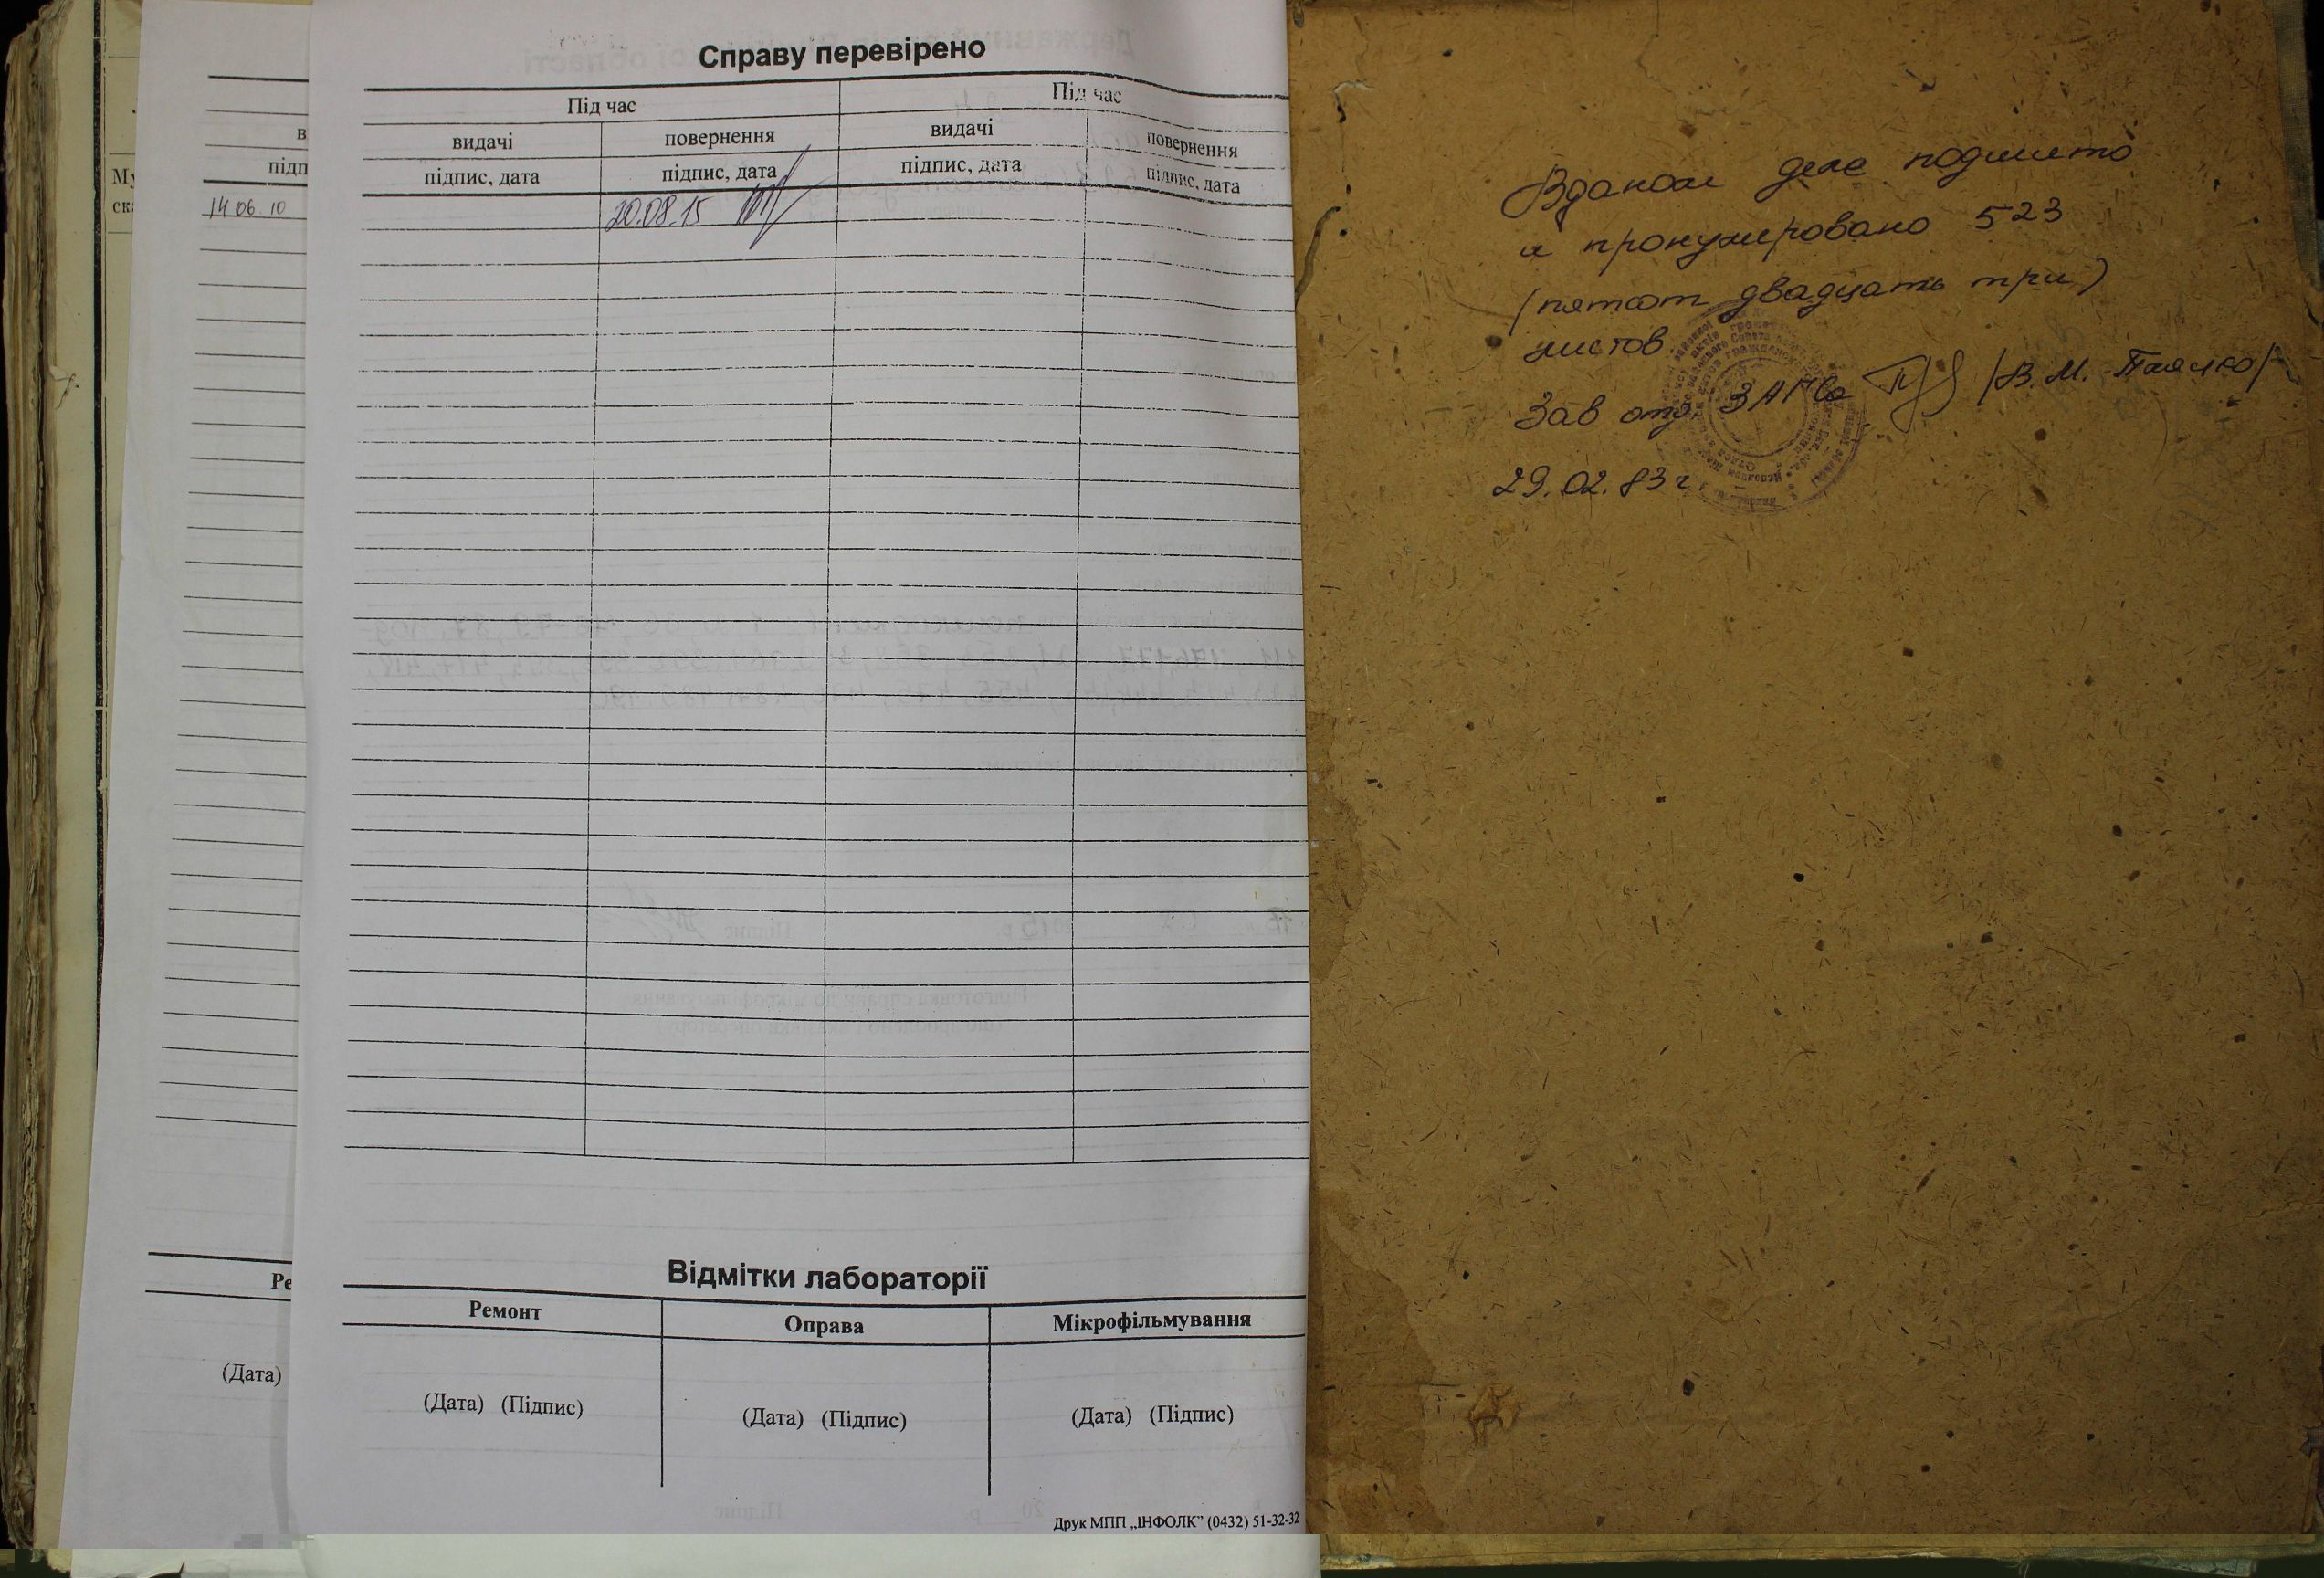 Му
ск
в
підп
14 06. 10
Ре
(Дата)
Справу перевірено
Під час
Під час
видачі
повернення
видачі
повернення
підпис, дата
підпис, дата
підпис, дата
підпис, дата
20.08.15
Відмітки лабораторії
Ремонт
Оправа
Мікрофільмування
(Дата) (Підпис)
(Дата) (Підпис)
(Дата) (Підпис)
Друк МПП „ІНФОЛК” (0432) 51-32-32
В даном деле подшито
и пронумировано 523
(пятсот двадцать три)
листов.
Зав отд. ЗАГСа /В. М.
29.02.83 г.